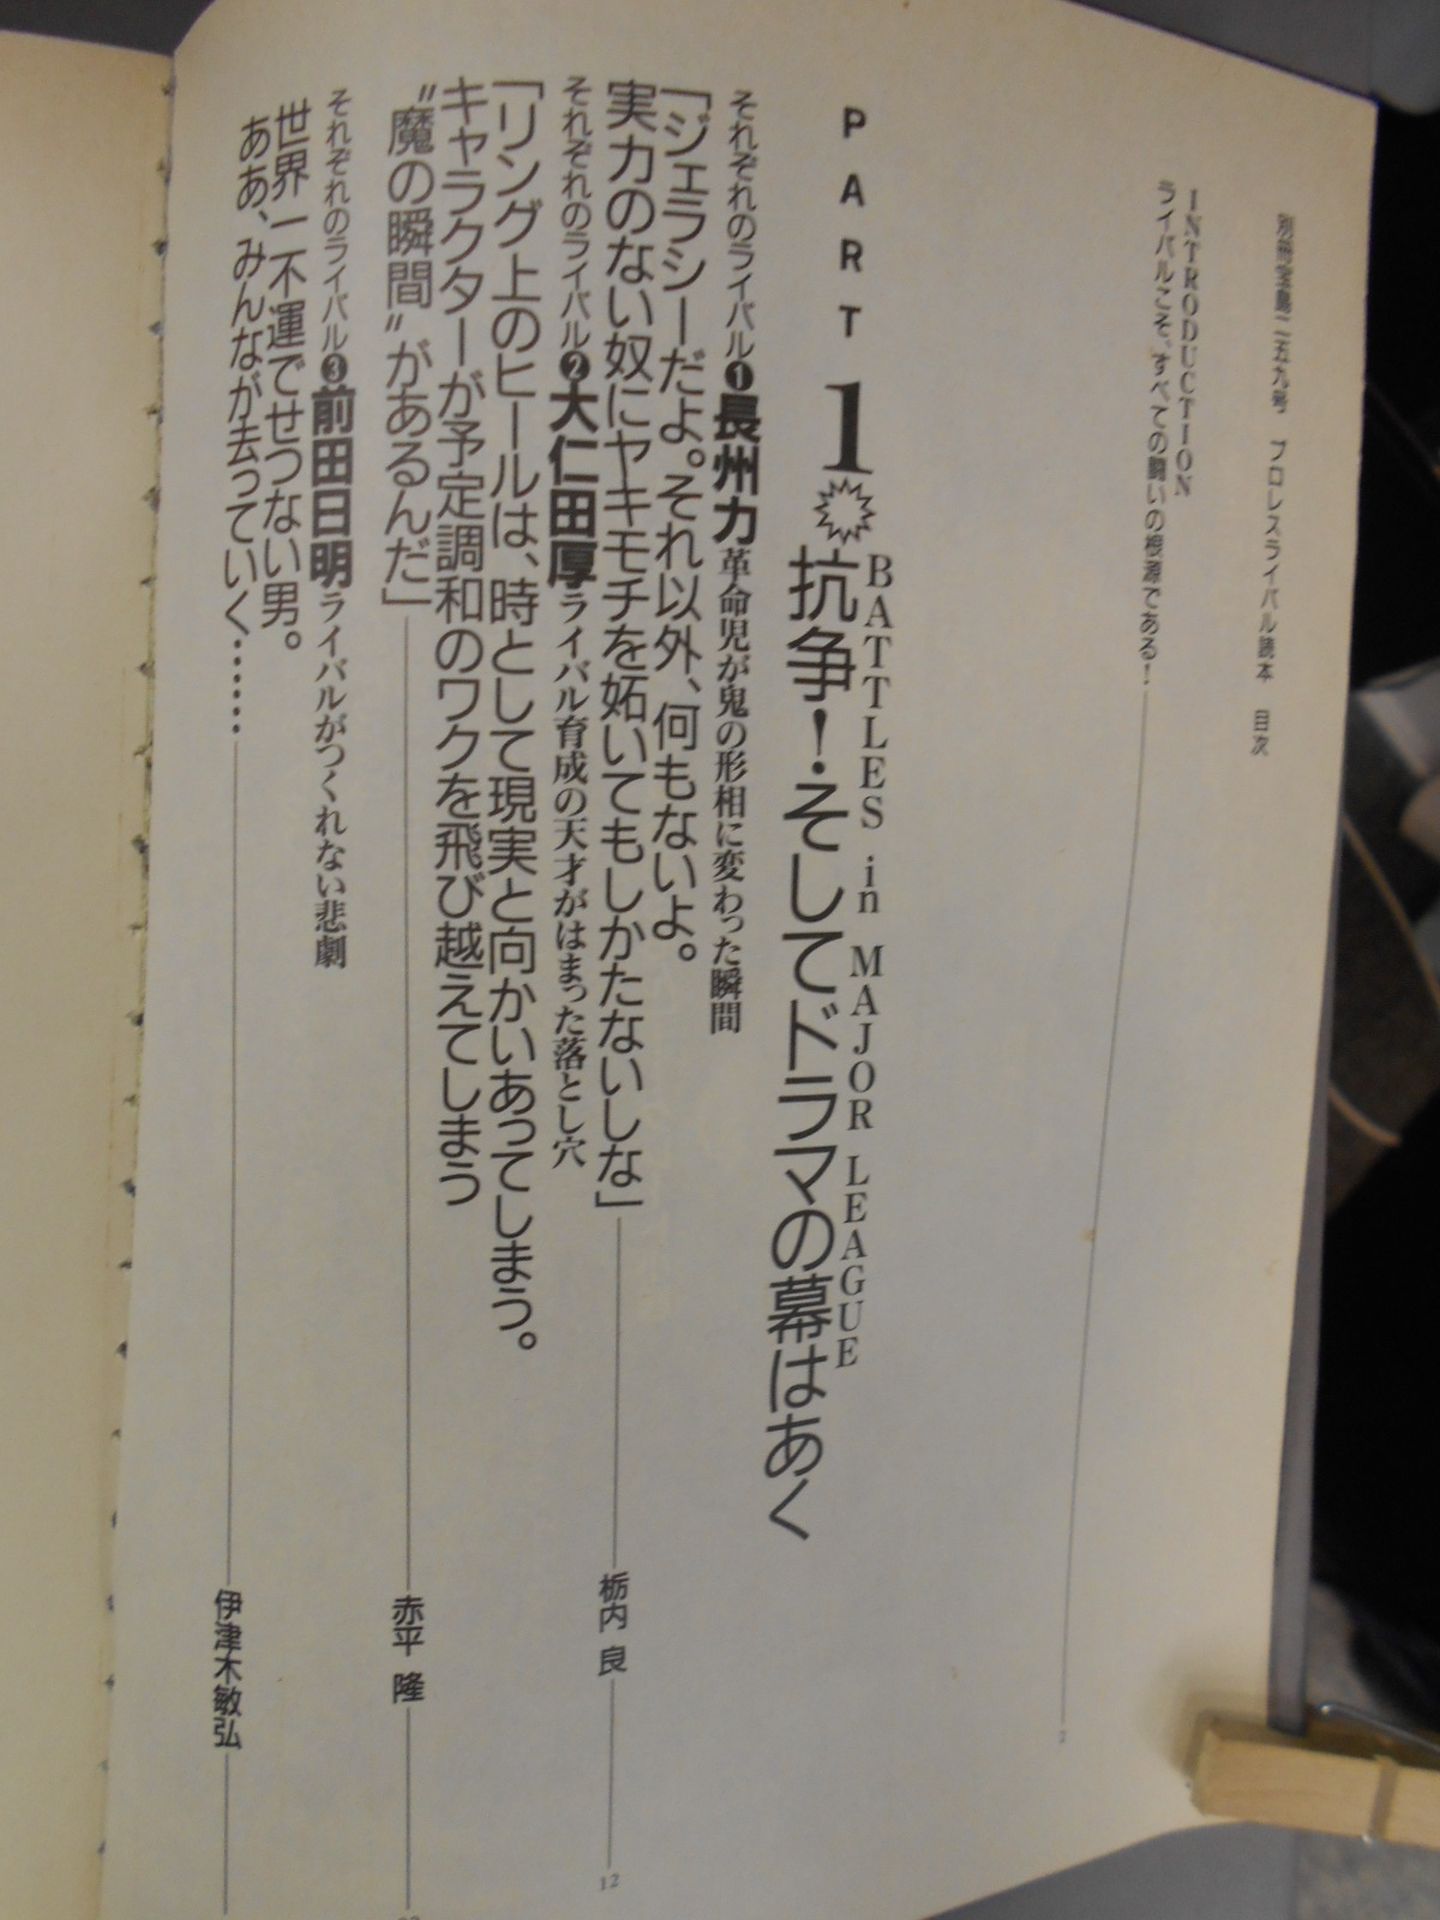 別冊宝島二五九号 プロレスライバル読本 目次
INTRODUCTION
ライバルこそ、すべての闘いの根源である! 2
PART 1
BATTLES in MAJOR LEAGUE
抗争!そしてドラマの幕はあく
それぞれのライバル❶長州力 革命児が鬼の形相に変わった瞬間
「ジェラシーだよ。それ以外、何もないよ。
実力のない奴にヤキモチを妬いてもしかたないしな」 栃内 良 12
それぞれのライバル❷大仁田厚 ライバル育成の天才がはまった落とし穴
「リング上のヒールは、時として現実と向かいあってしまう。
キャラクターが予定調和のワクを飛び越えてしまう
〝魔の瞬間〟があるんだ」 赤平 隆
それぞれのライバル❸前田日明 ライバルがつくれない悲劇
世界一不運でせつない男。
ああ、みんなが去っていく…… 伊津木敏弘